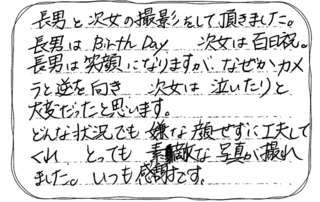 長男と次女の撮影をして頂きました。
長男は Birth Day 次女は百日祝。
長男は笑顔になりますが、なぜかカメ
ラと逆を向き 次女は 泣いたりと
大変だったと思います。
どんな状況でも 嫌な顔せずに工夫して
くれ とっても 素敵な写真が撮れ
ました。いつも感謝です。